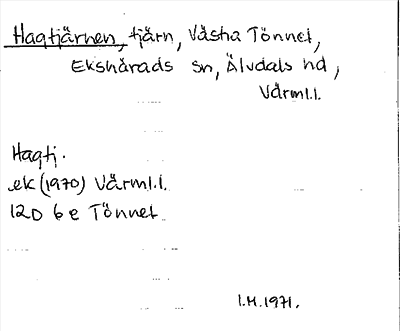 Hagtjärnen, tjärn, Västra Tönnet,
Ekshärads sn, Älvdals hd,
Värml.l.
Hagtj.
ek (1970) Värml.l.
12D 6e Tönnet
I.H. 1971.